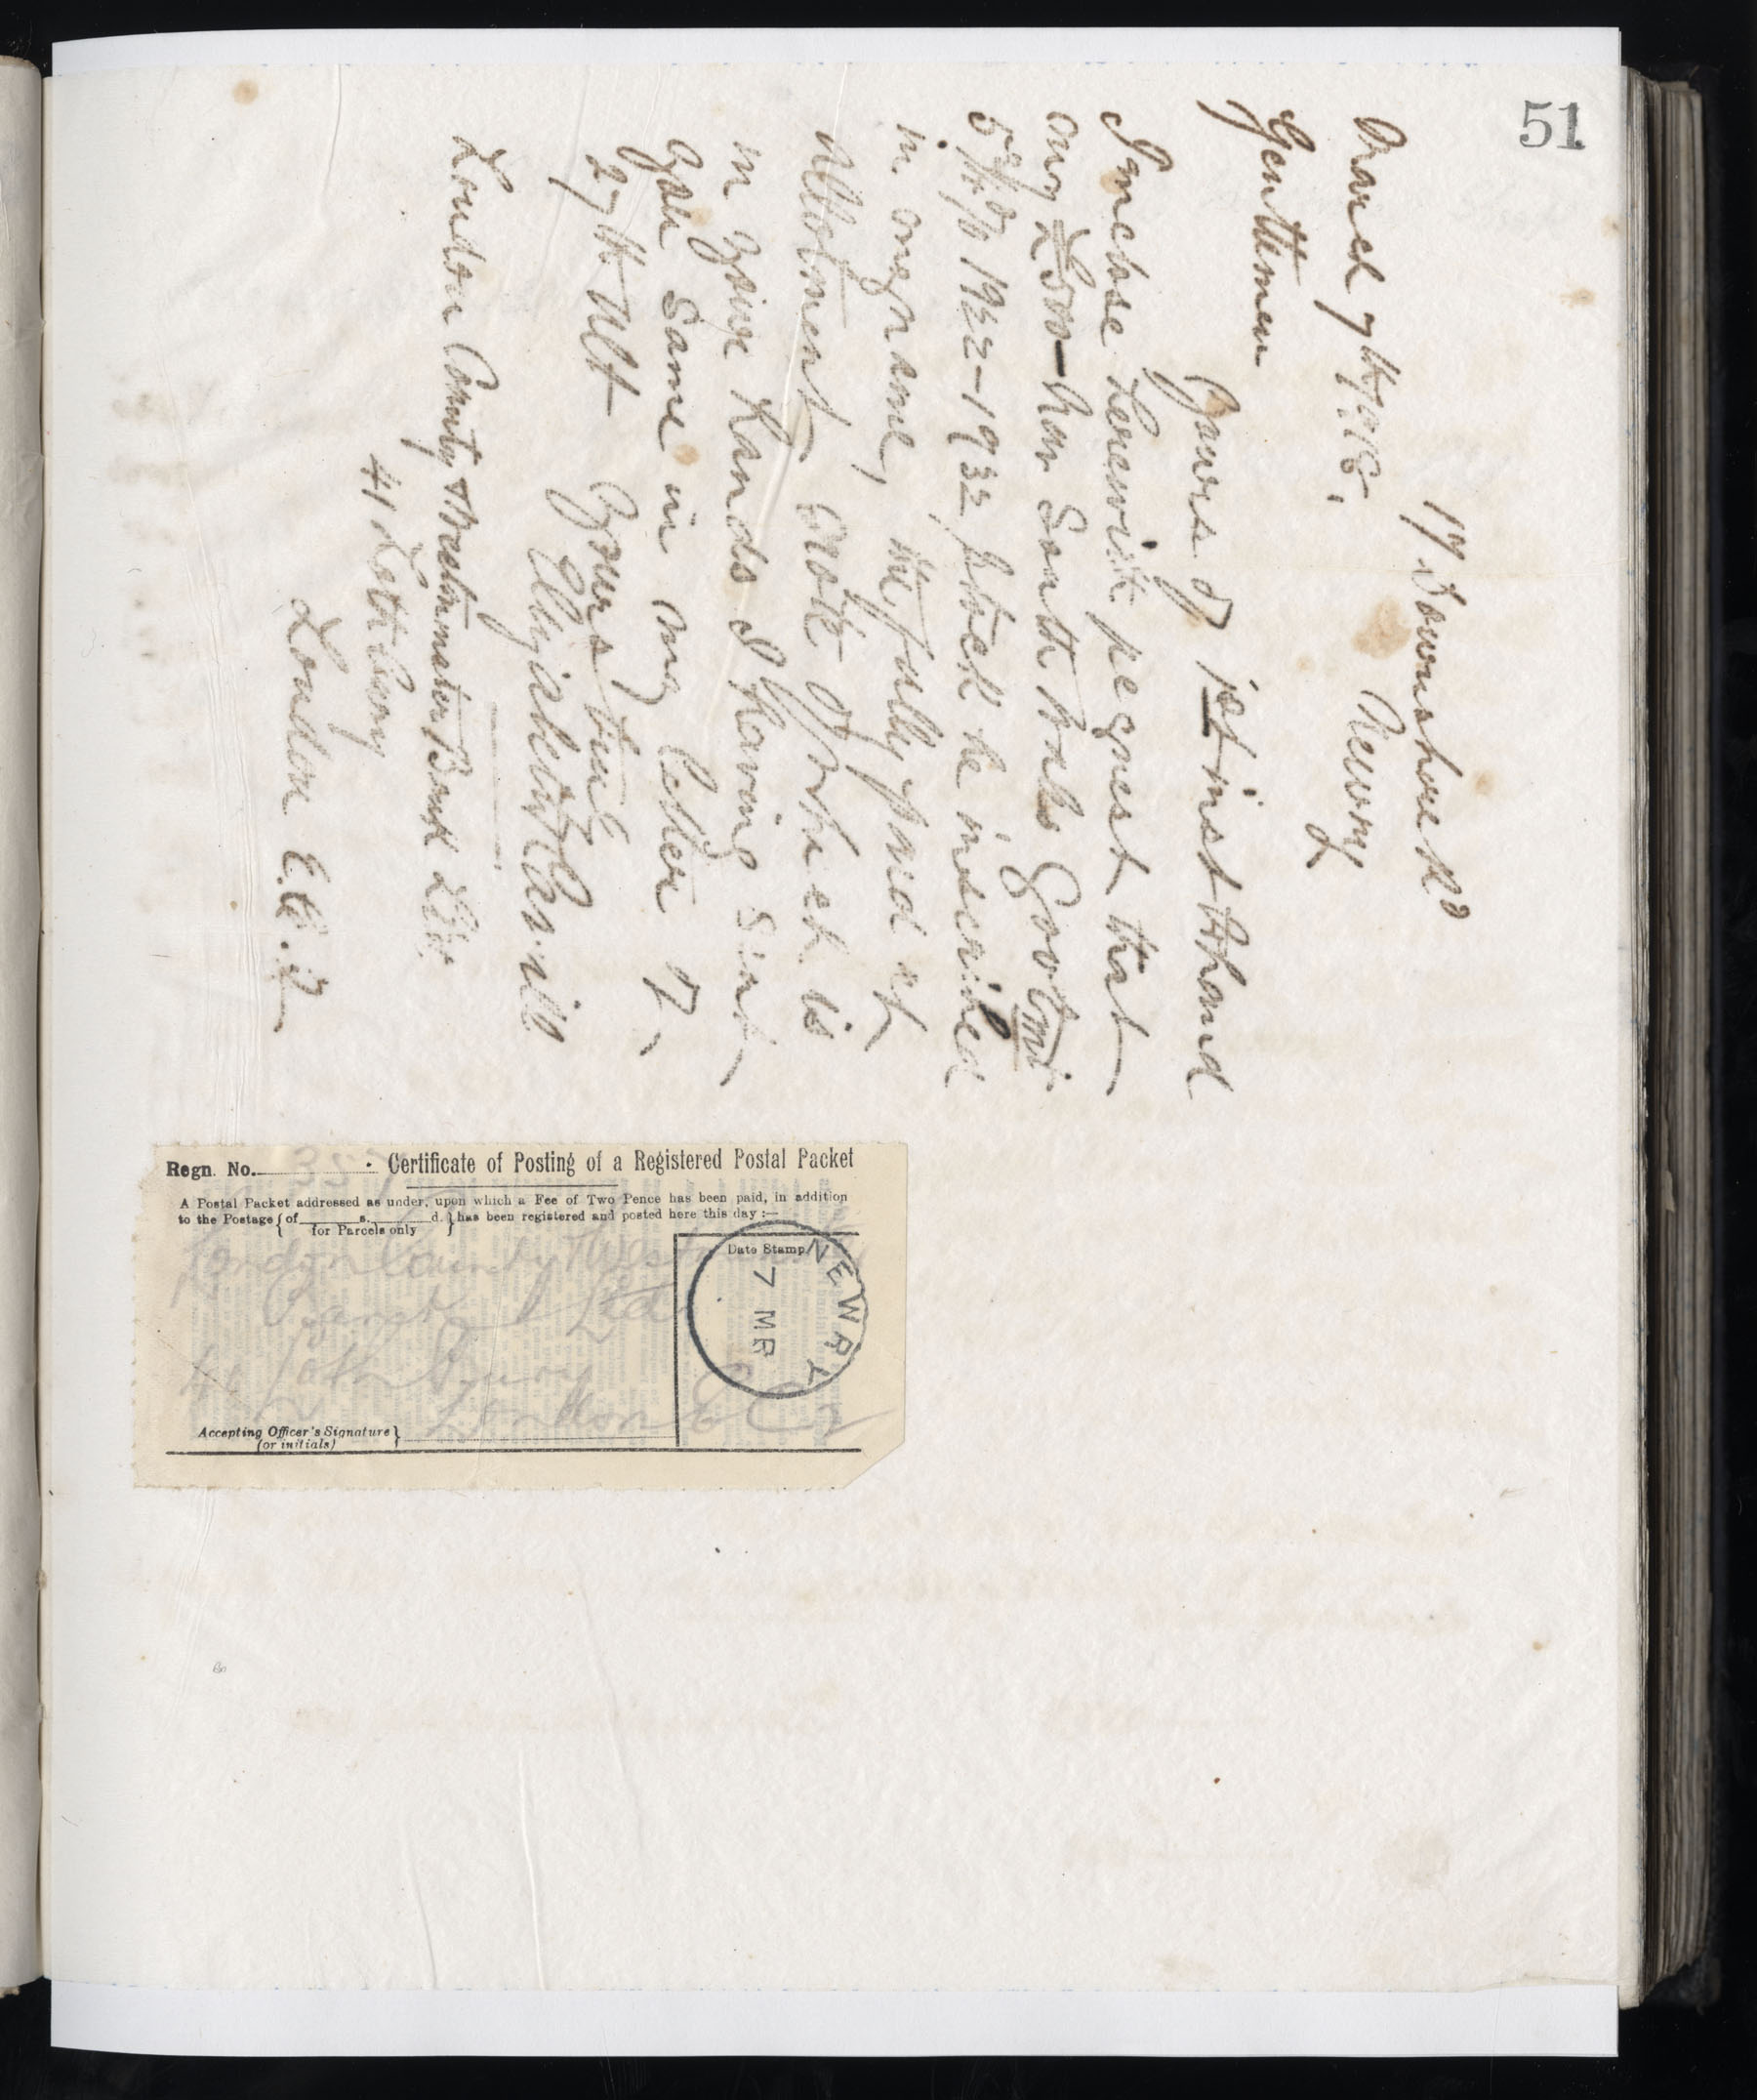 51
17 Downshire Rd
Newry
March 7th 1918.
Gentlemen
Yours of 1st inst to hand
I inclose herewith request that
my £500 New South Wales Govt
5¾% 1922-1932 stock be inscribed
in my name, fully paid
Allotment note of which is
in your hands I having sent
you same in my letter of
27th Ult Yours truly
London County & Westminster Bank Ltd.
41 Lothbury
London E.C. 2
Regn. No. Certificate of Posting of a Registered Postal Packet
A Postal Packet addressed as under, upon which a Fee of Two Pence has been paid, in addition
to the Postage { of s. d. } has been registered and posted here this day :—
for Parcels only
Date Stamp
NEWRY
7 MR
London County & West
Bank Ltd
41 Lothbury
London E C 2
Accepting Officer's Signature }
(or initials)